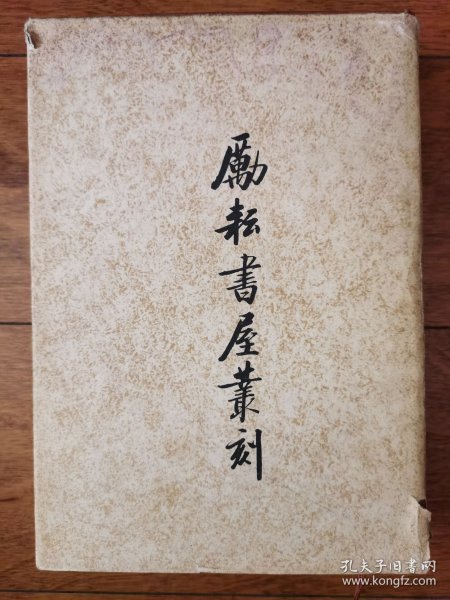 勵耘書屋叢刻
孔夫子旧书网
www.kongfz.com